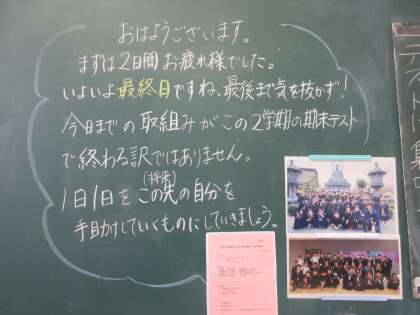 おはようございます。
まずは2日間お疲れ様でした。
いよいよ最終日ですね。最後まで気を抜かず!
今日までの取組みがこの2学期の期末テスト
で終わる訳ではありません。
(将来)
1日1日をこの先の自分を
手助けしていくものにしていきましょう。